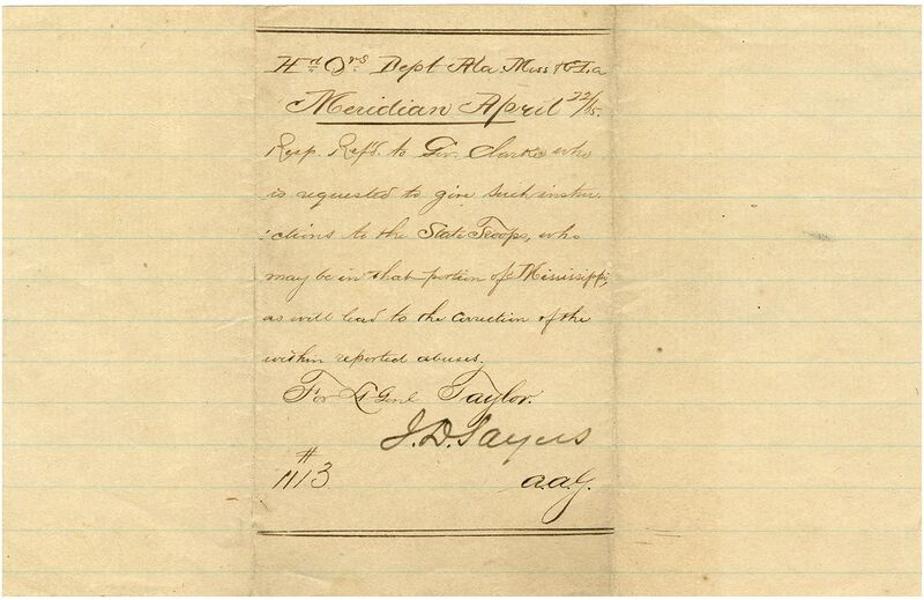 Hd Qrs Dept Ala. Miss & E. La
Meridian April 22/65.
Resp. Refd. to Gov. Clarke who
is requested to give such instru-
:ctions to the State Troops, who
may be in that portion of Mississippi,
as will lead to the correction of the
within reported abuses.
For Lt Genl Taylor.
J. D. Sayers
a.a.G.
#
1113